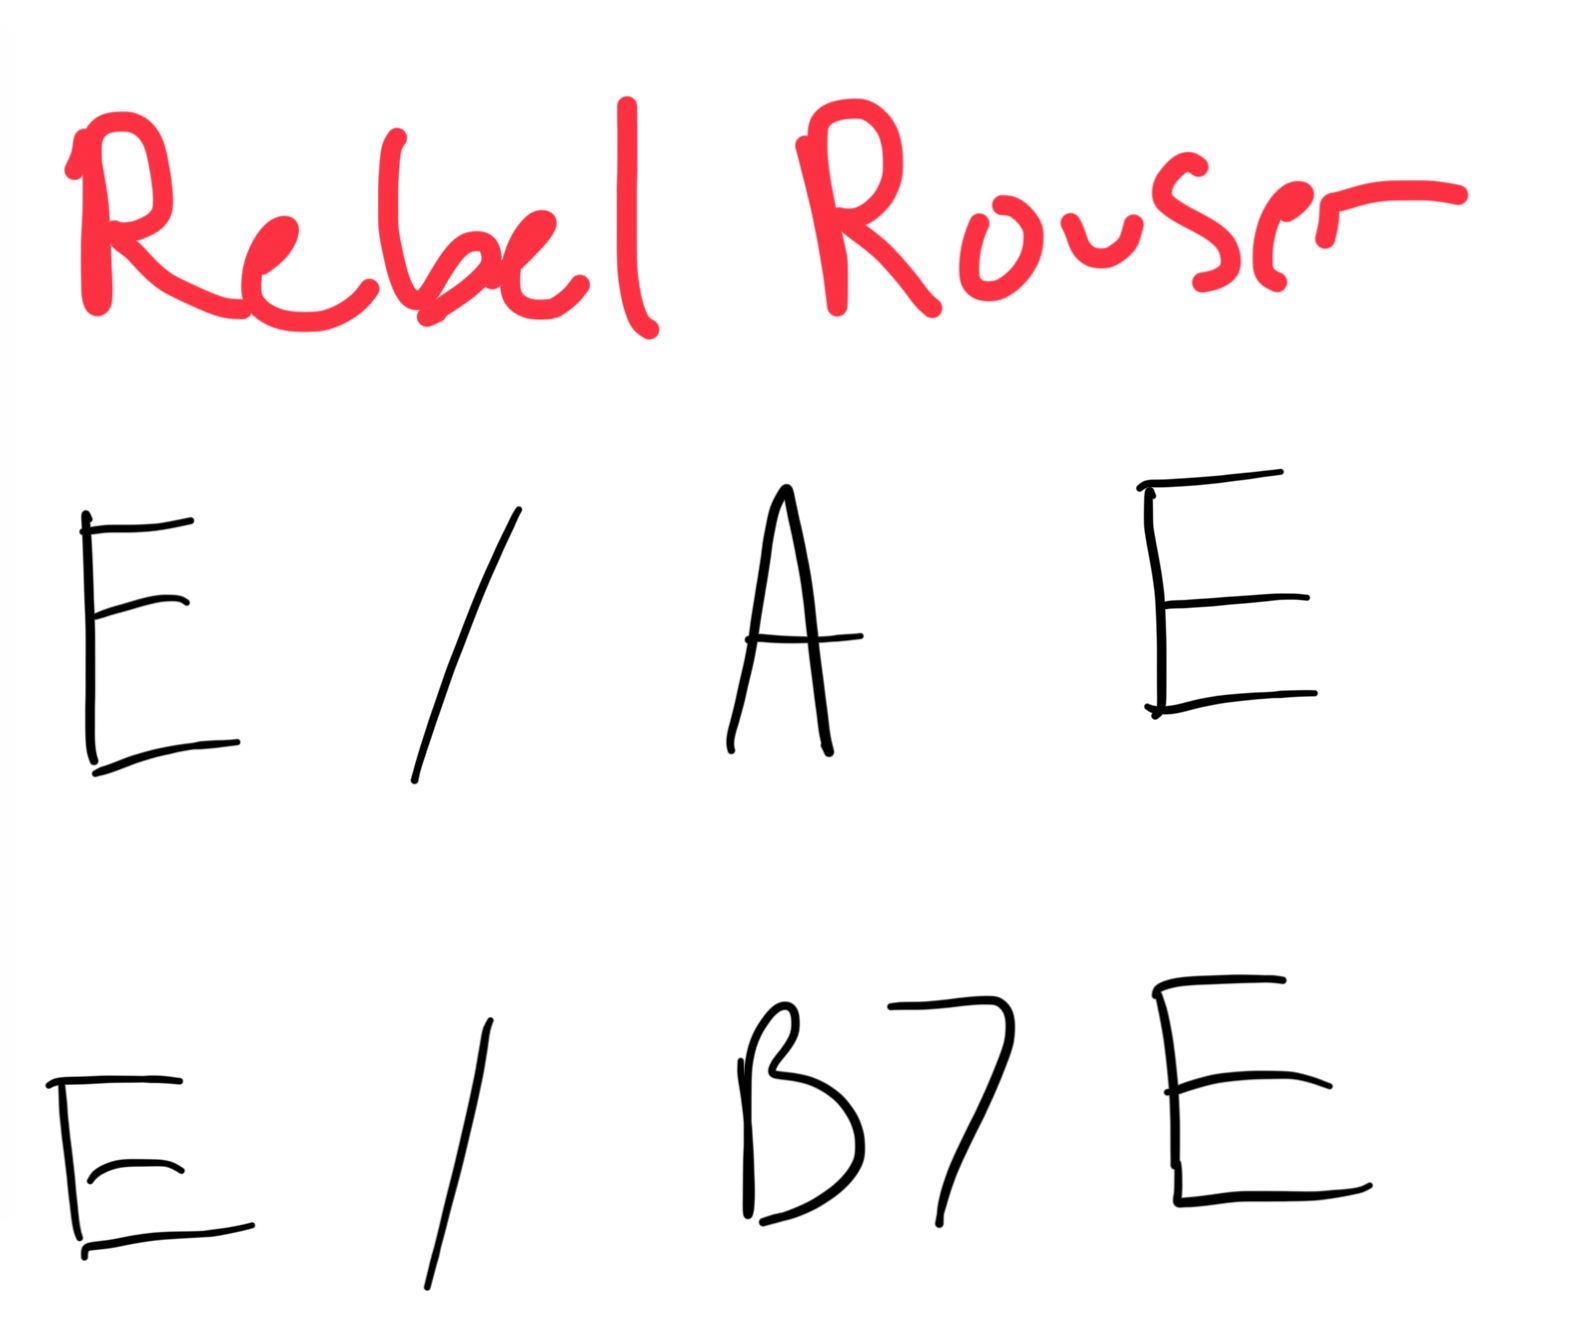 Rebel Rouser
E / A E
E / B7 E